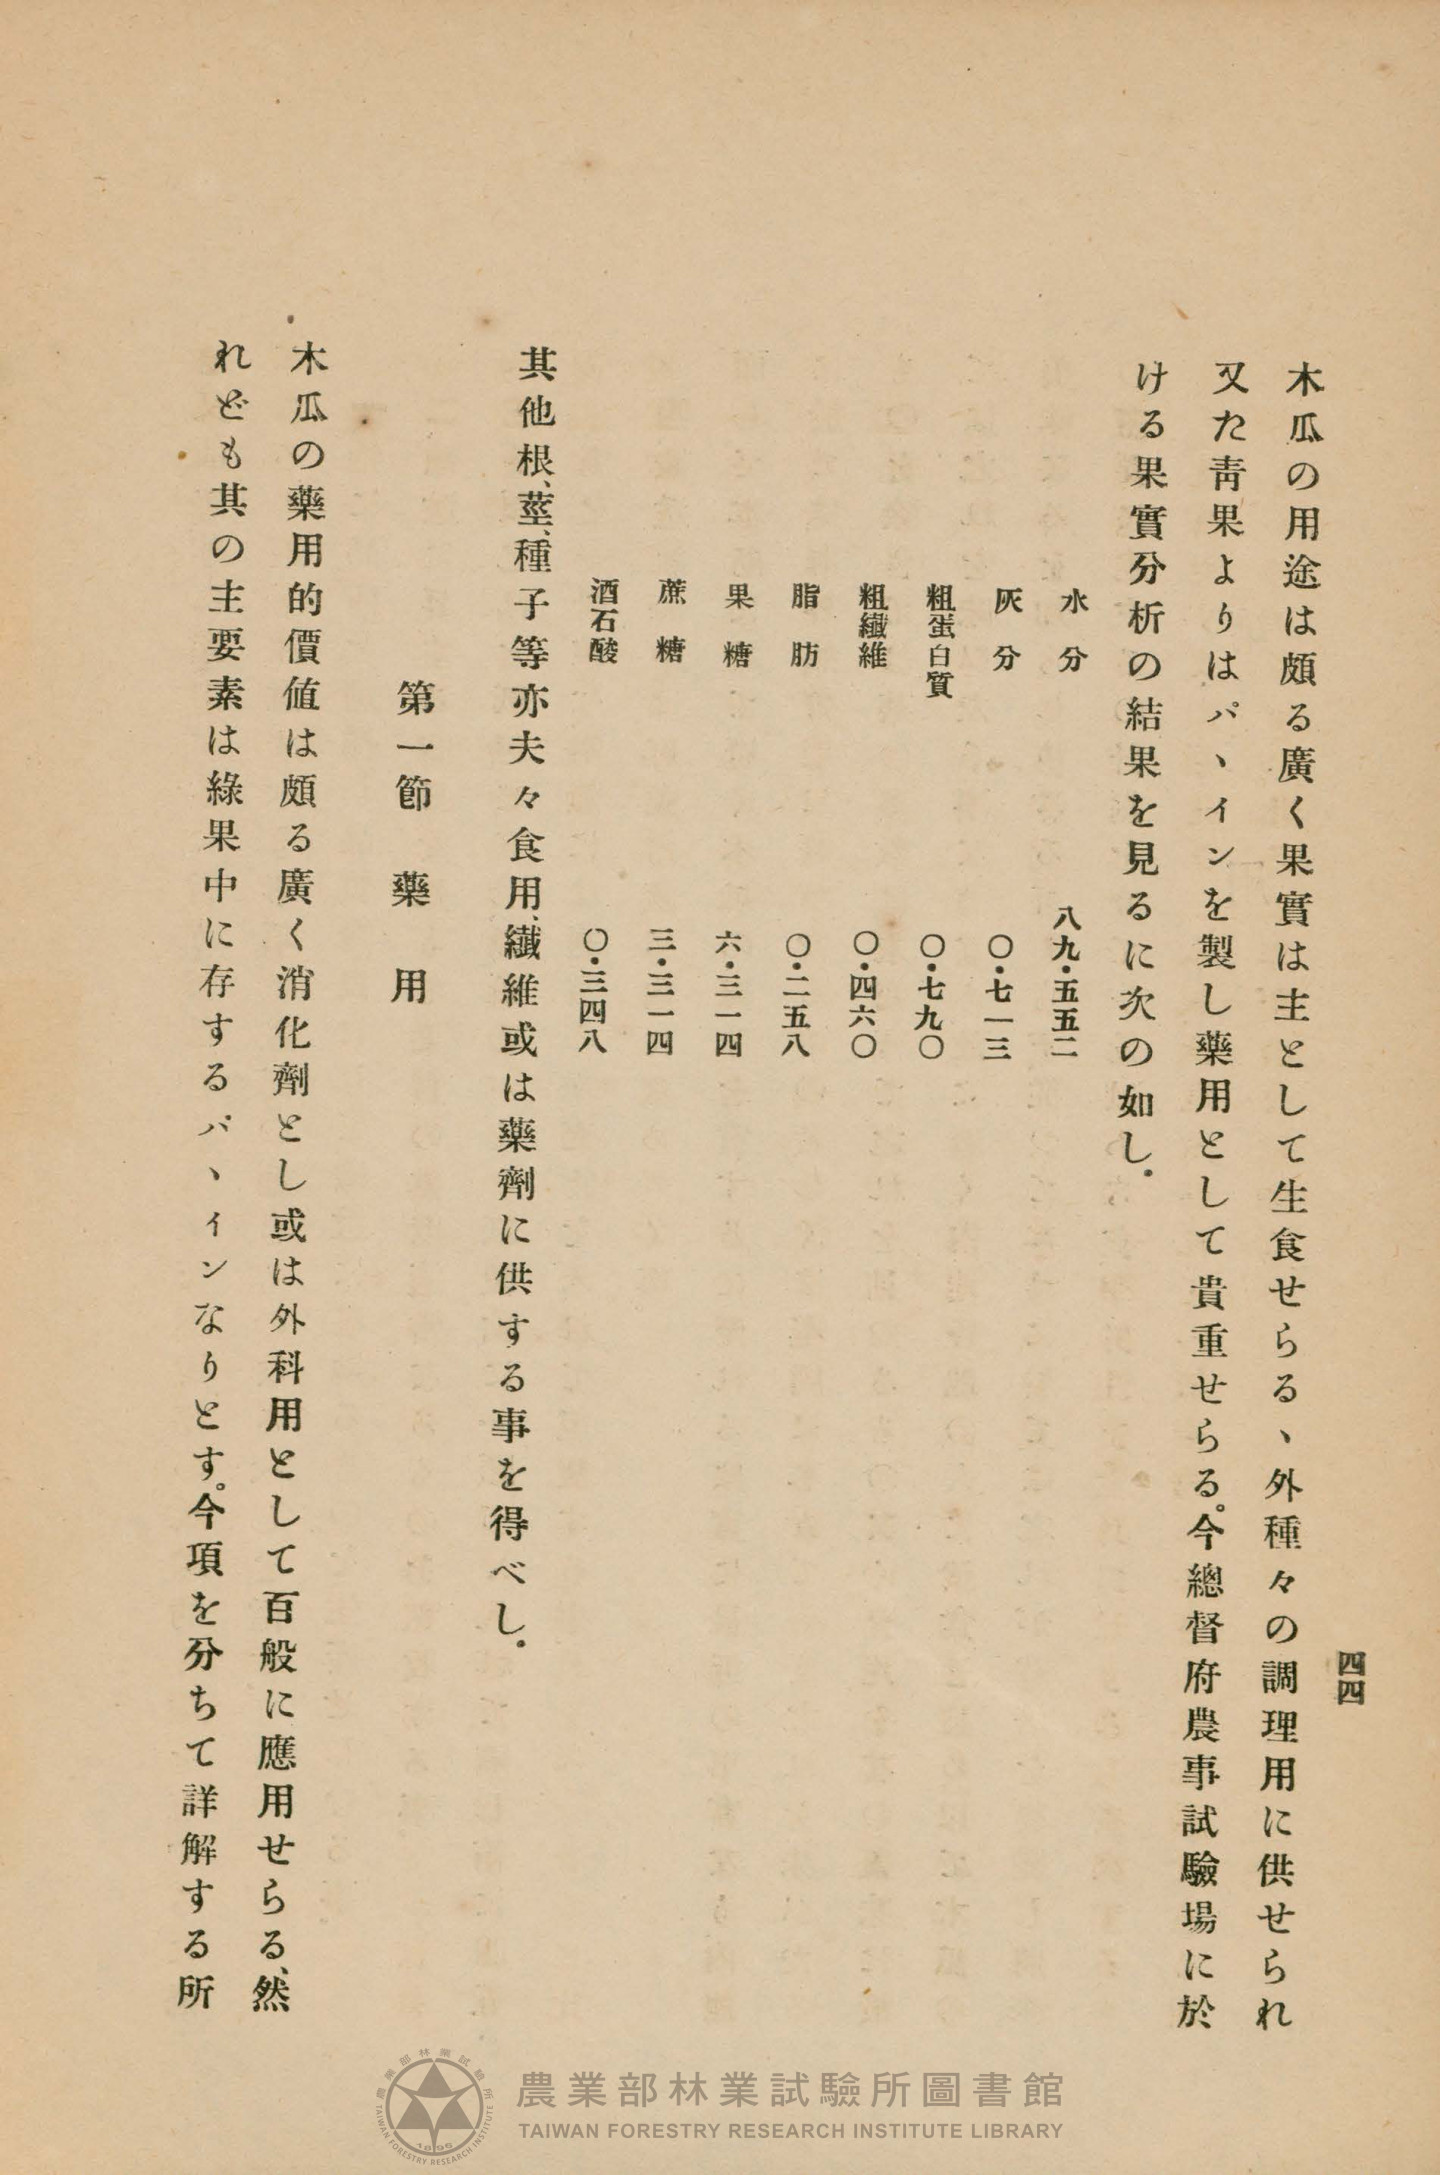 四四
木瓜の用途は頗る廣く果實は主として生食せらる、外種々の調理用に供せられ
又た靑果よりはパヽインを製し藥用として貴重せらる。今總督府農事試驗場に於
ける果實分析の結果を見るに次の如し。
水分　八九・五五二
灰分　〇・七一三
粗蛋白質　〇・七九〇
粗纎維　〇・四六〇
脂肪　〇・二五八
果糖　六・三一四
蔗糖　三・三一四
酒石酸　〇・三四八
其他根、莖、種子等亦夫々食用、纎維或は藥劑に供する事を得べし。
第一節　藥用
木瓜の藥用的價値は頗る廣く消化劑とし或は外科用として百般に應用せらる、然
れども其の主要素は綠果中に存するパヽインなりとす。今項を分ちて詳解する所
農業部林業試驗所圖書館
TAIWAN FORESTRY RESEARCH INSTITUTE LIBRARY
農業部林業試驗所
TAIWAN FORESTRY RESEARCH INSTITUTE
1896